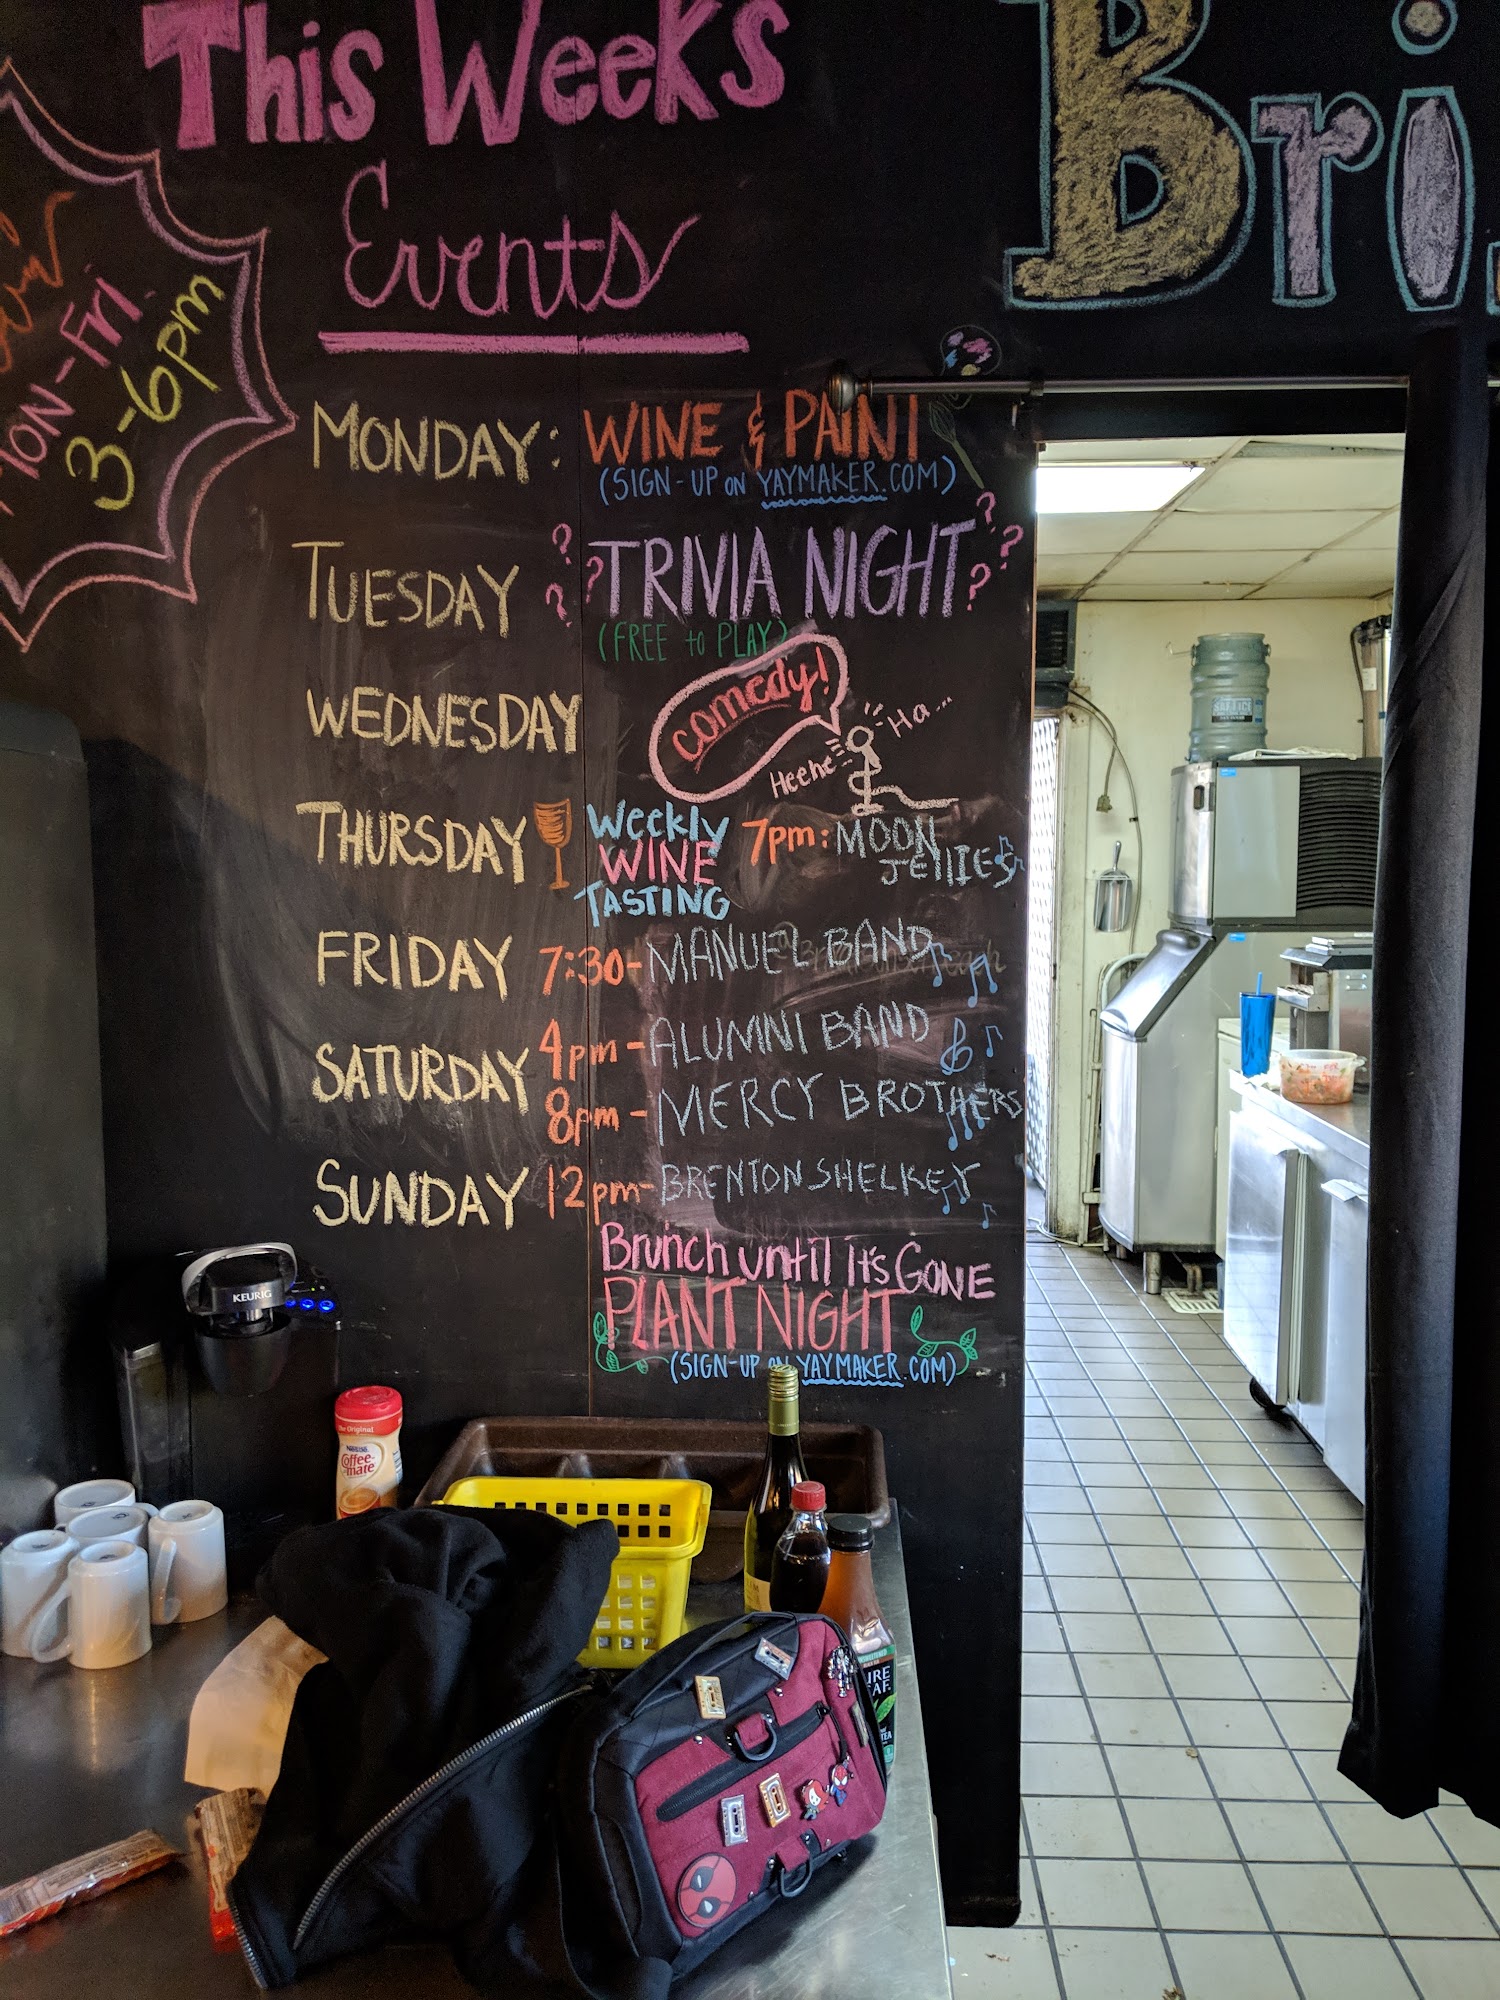 This Weeks
Events
Mon-Fri.
3-6pm
Bri
MONDAY: WINE & PAINT
(SIGN-UP ON YAYMAKER.COM)
TUESDAY ??? TRIVIA NIGHT ???
(FREE to PLAY)
WEDNESDAY comedy!
Ha...
Heehe
THURSDAY Weekly WINE TASTING 7pm: MOON JEllIES
FRIDAY 7:30- MANUEL BAND
SATURDAY 4pm - ALUMNI BAND
8pm - MERCY BROTHERS
SUNDAY 12pm- BRENTON SHELKEY
Brunch until it's GONE
PLANT NIGHT
(SIGN-UP ON YAYMAKER.COM)
KEURIG
The Original
Nestle
Coffee-mate